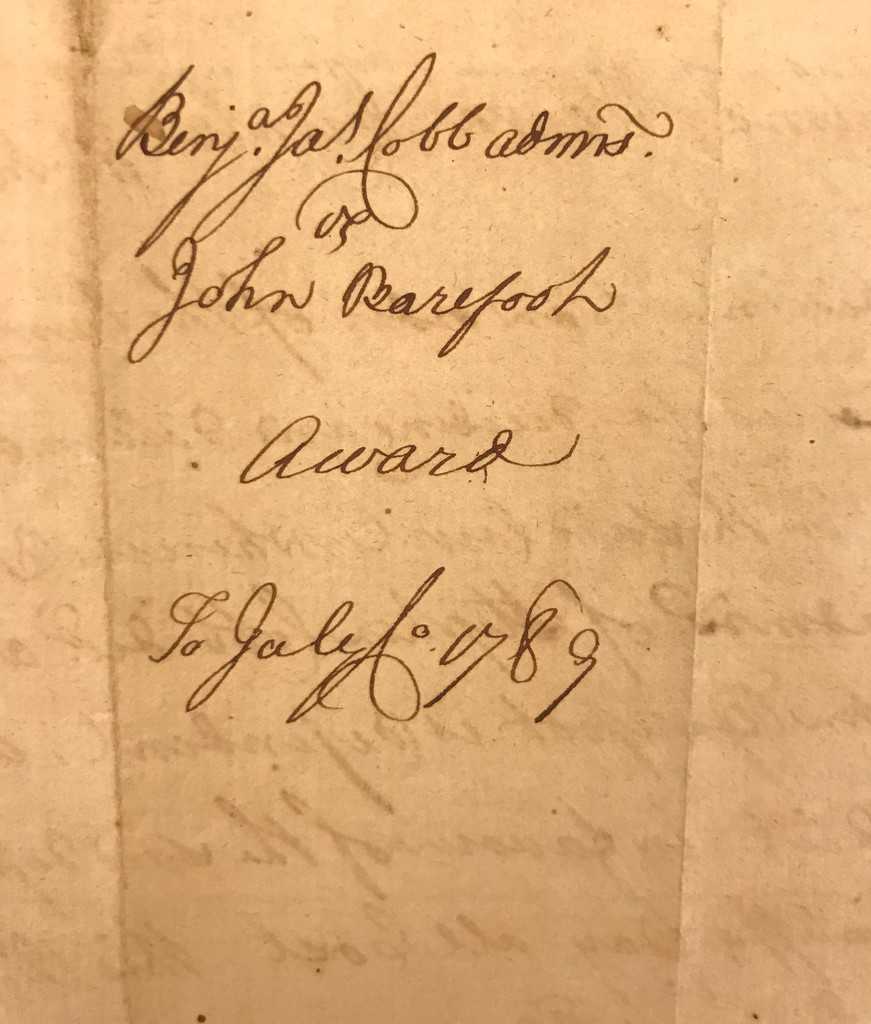 Benjᵃ. Jaˢ. Cobb admrs.
vs
John Barefoot
Award
To July Co. 1789